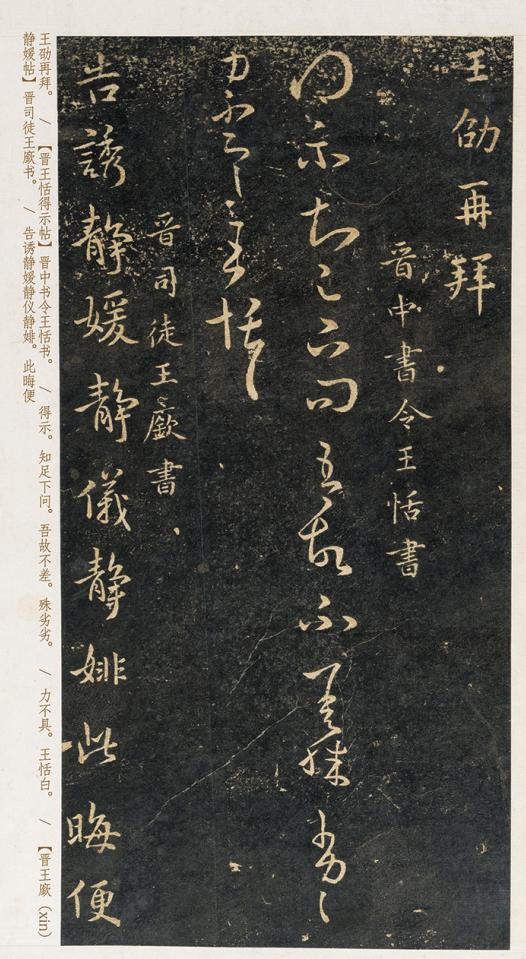 王劭再拜
晋中書令王恬書
得示知足下问吾故不差殊劣劣
力不具王恬白
晋司徒王廞書
告誘静媛静儀静婔此晦便
王劭再拜。 / 【晋王恬得示帖】晋中书令王恬书。 / 得示。知足下问。吾故不差。殊劣劣。 / 力不具。王恬白。 / 【晋王廞（xin）
静媛帖】晋司徒王廞书。 / 告诱静媛静仪静婔。此晦便